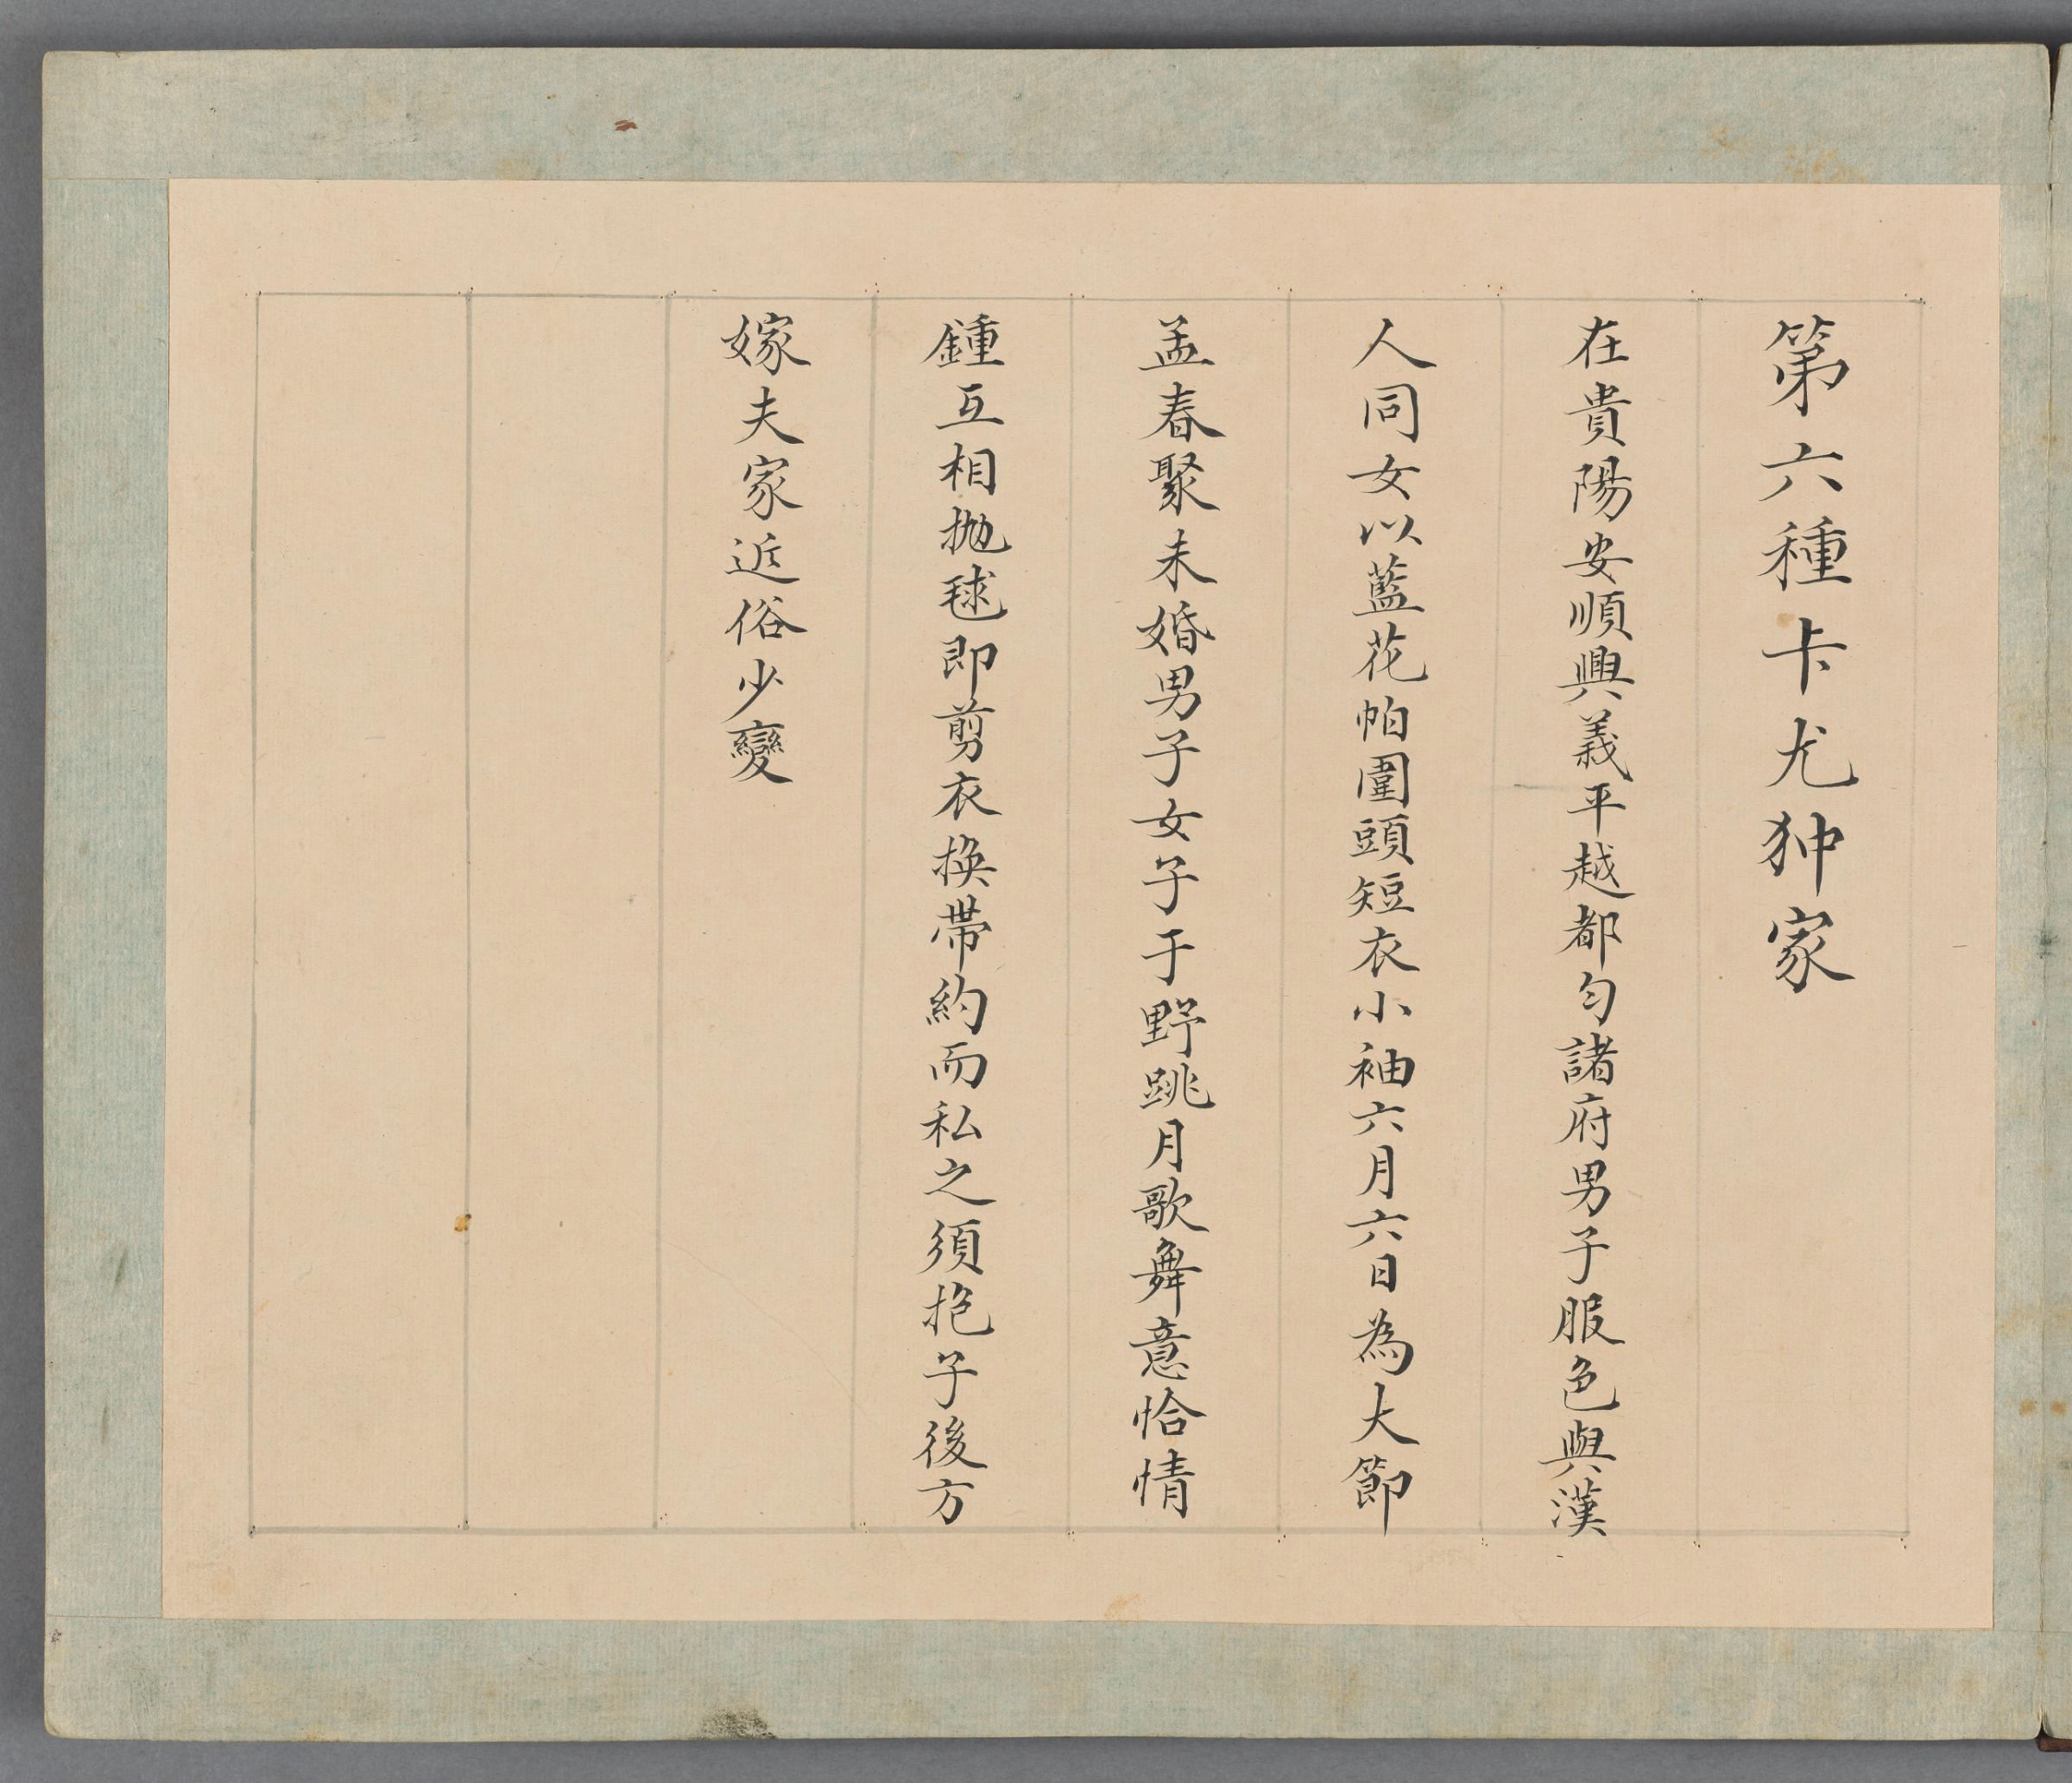 第六種卡尤狆家
在貴陽安順興義平越都匀諸府男子服色與漢
人同女以藍花帕圍頭短衣小袖六月六日為大節
孟春聚未婚男子女子于野跳月歌舞意恰情
鍾互相拋毬即剪衣換帶約而私之須抱子後方
嫁夫家近俗少變